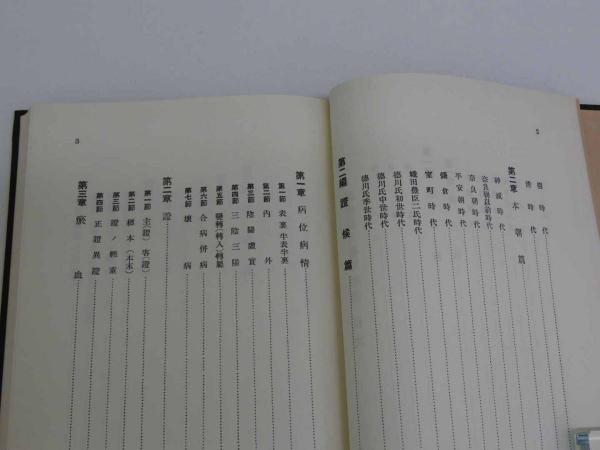 2
明時代
清時代
第二章 本朝篇
神威時代
奈良朝以前時代
奈良朝時代
平安朝時代
鎌倉時代
室町時代
織田豊臣二氏時代
德川氏初世時代
德川氏中世時代
德川氏季世時代
第二編 證候篇
3
第一章 病位病情
第一節 表裏半表半裏
第二節 內外
第三節 陰陽虛實
第四節 三陰三陽
第五節 變轉(轉入)轉屬
第六節 合病併病
第七節 壞病
第二章 證
第一節 主(證)客(證)
第二節 標本(本末)
第三節 證ノ輕重
第四節 正證異證
第三章 瘀血